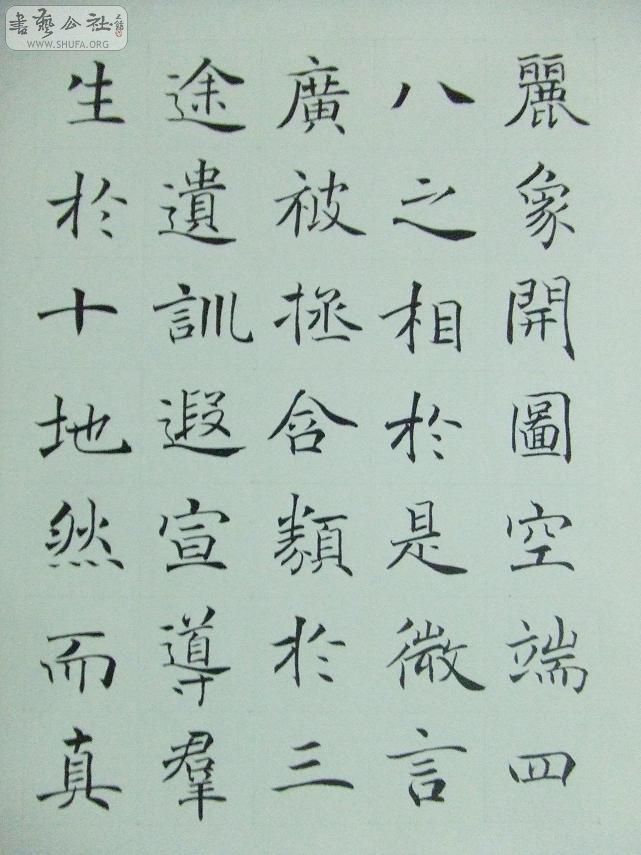 書藝公社
WWW.SHUFA.ORG
麗象開圖空端四
八之相於是微言
廣被拯含類於三
途遺訓遐宣導羣
生於十地然而真